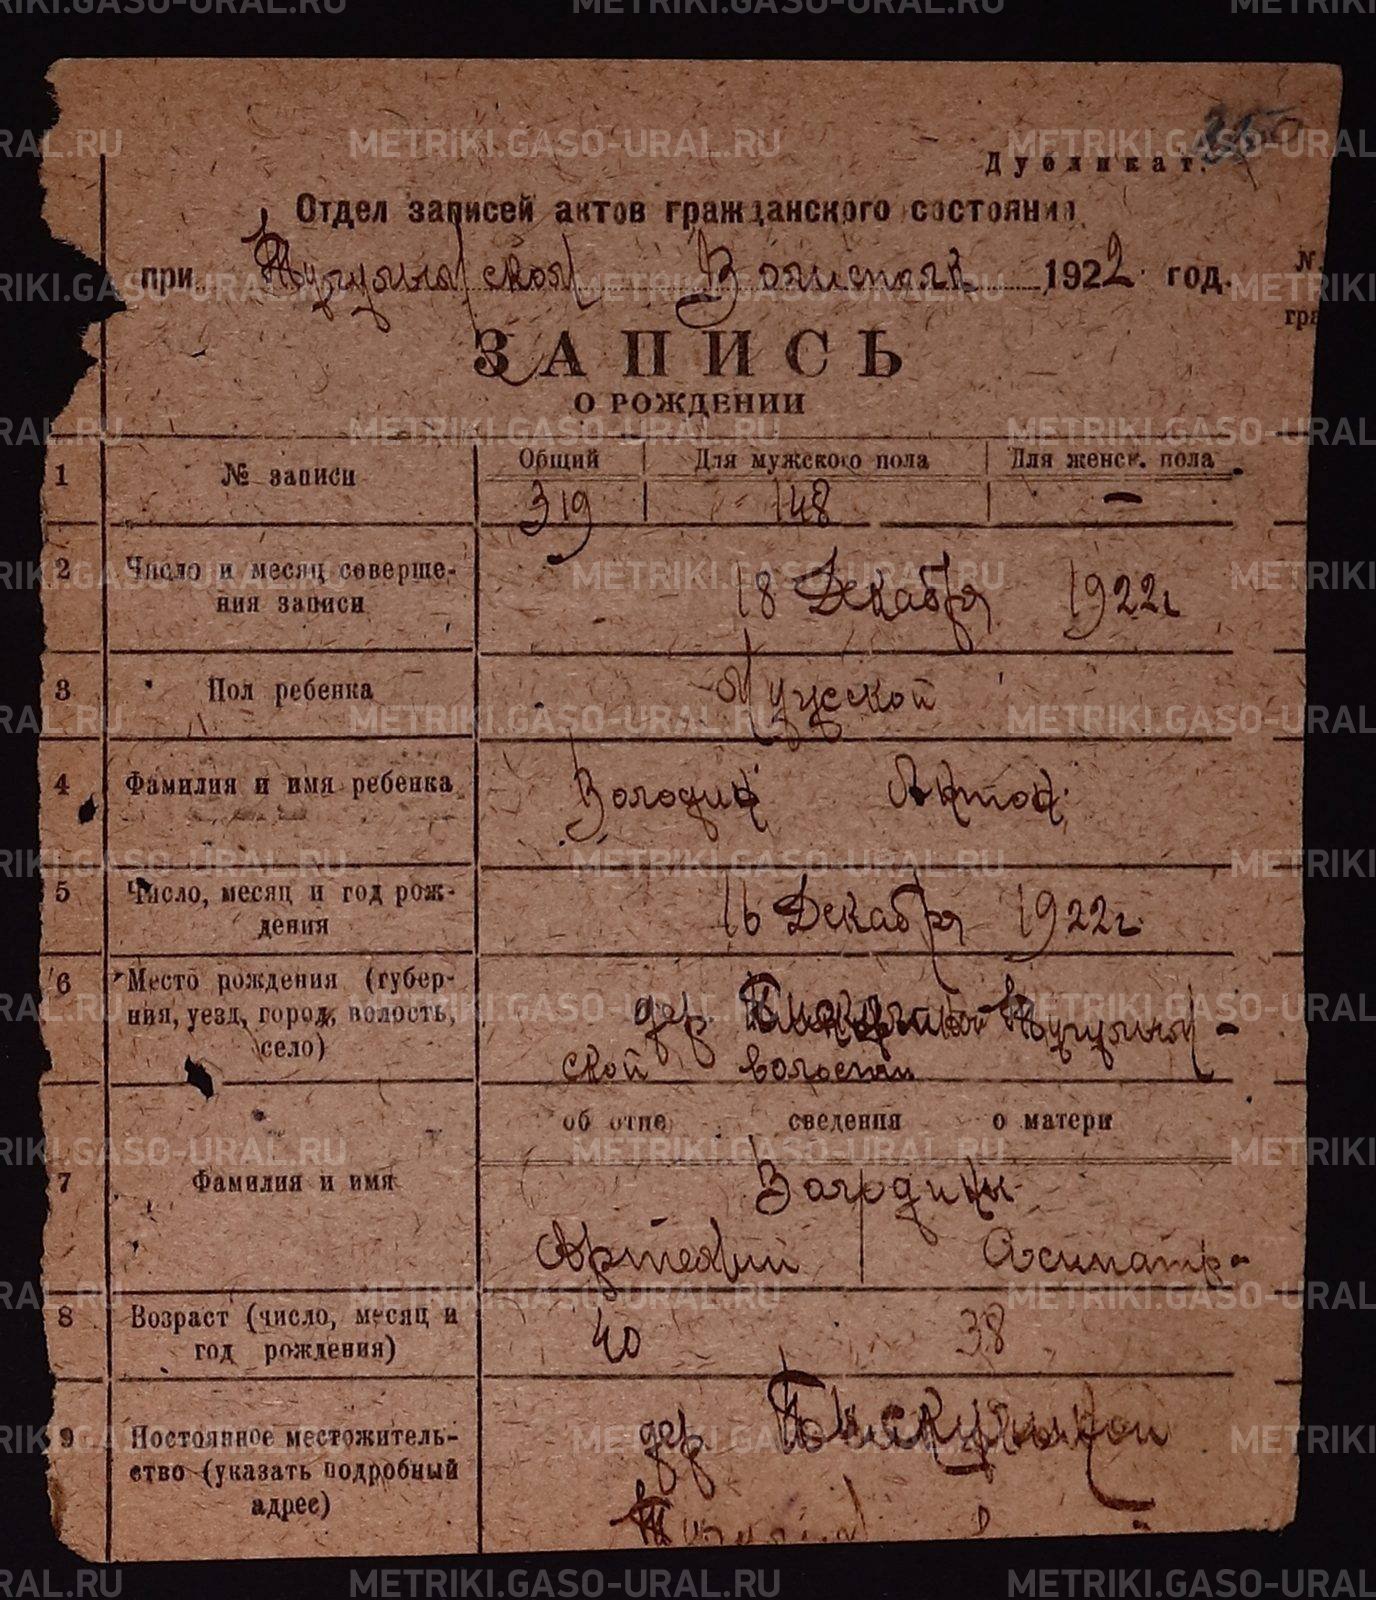 350
Дубликат.
Отдел записей актов гражданского состояния
при Тугулымской Волисполк 1922 год.
№
гра
ЗАПИСЬ
О РОЖДЕНИИ
1 № записи Общий Для мужского пола Для женск. пола
319 148 —
2 Число и месяц соверше-
ния записи 18 Декабря 1922 г
3 Пол ребенка Мужской
4 Фамилия и имя ребенка Володин Антон
5 Число, месяц и год рож-
дения 16 Декабря 1922 г.
6 Место рождения (губер-
ния, уезд, город, волость,
село) дер. Тугулым-
ской волости
об отце сведения о матери
7 Фамилия и имя Володины
Артемий
8 Возраст (число, месяц и
год рождения) 40 38
9 Постоянное местожитель-
ство (указать подробный
адрес) дер.
METRIKI.GASO-URAL.RU